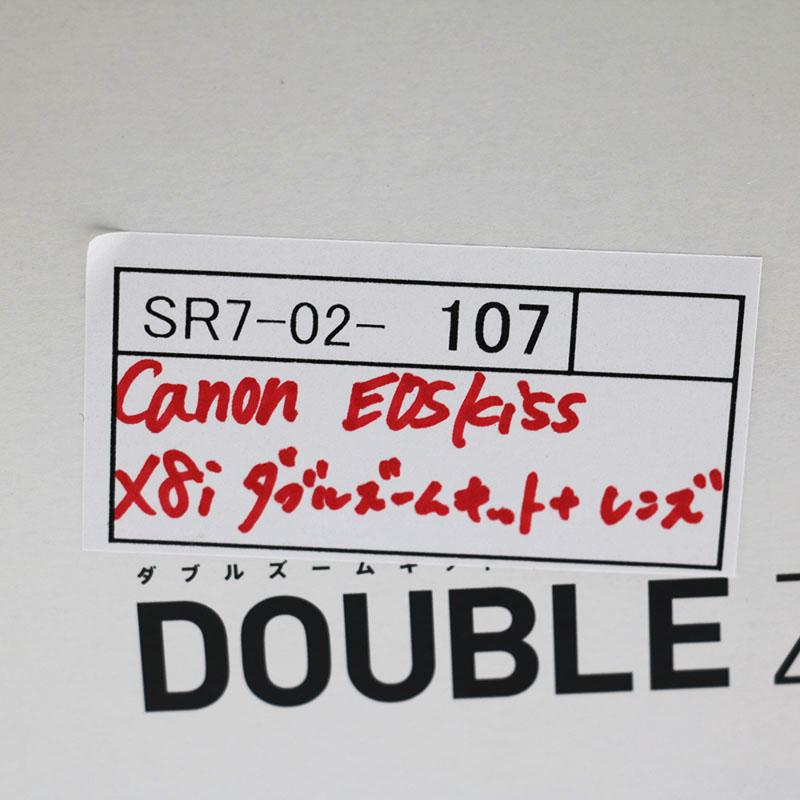 SR7-02- 107
Canon EOSKiss
X8i ダブルズームキット+レンズ
ダブルズームキット
DOUBLE Z